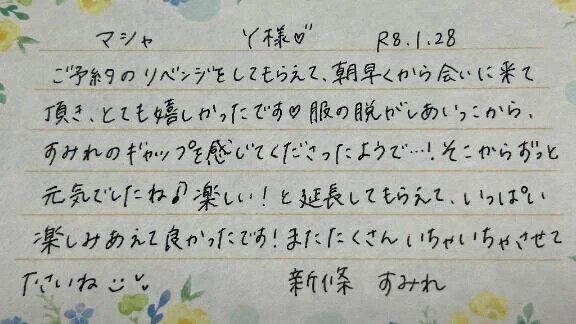 マシャ Y様♡ R8.1.28
ご予約のリベンジをしてもらえて、朝早くから会いに来て
頂き、とても嬉しかったです♡服の脱がしあいっこから、
すみれのギャップを感じてくださったようで…!そこからずっと
元気でしたね♪楽しい!と延長してもらえて、いっぱい
楽しみあえて良かったです!またたくさんいちゃいちゃさせて
ださいね
新條 すみれ